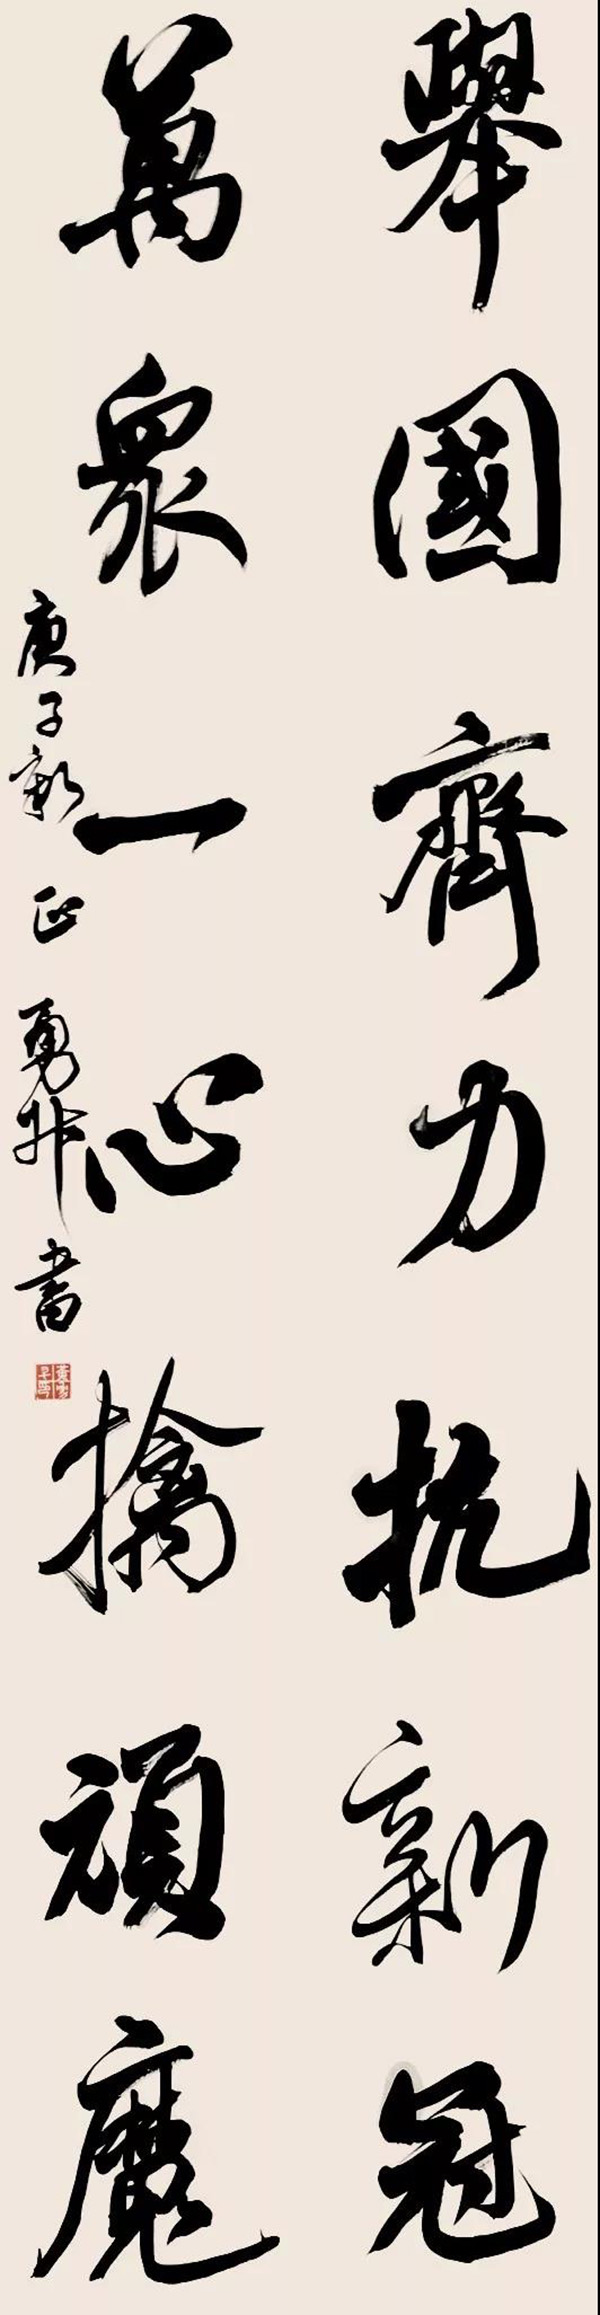 舉國齊力抗新冠
萬眾一心擒頑魔
庚子新正勇升書